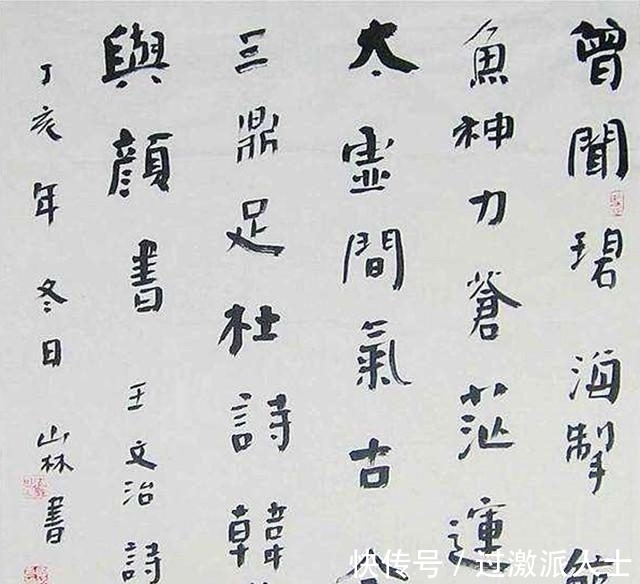 曾聞碧海掣
魚神力蒼茫運
太虛間氣古
三鼎足杜詩韓
與顏書 王文治詩
丁亥年冬日 山林書
快传号 / 过激派人士